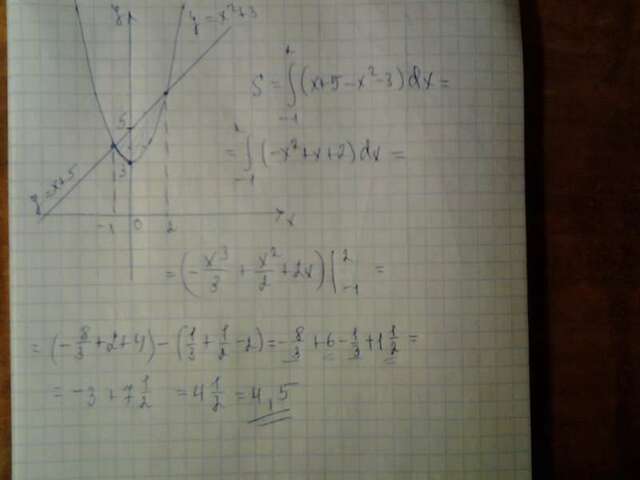 y
y = x²+3
5
3
y = x+5
-1 0 2 x
S = ∫₋₁² (x+5-x²-3) dx =
= ∫₋₁² (-x²+x+2) dx =
= (-x³/3 + x²/2 + 2x) |₋₁² =
= (-8/3+2+4) - (1/3+1/2-2) = -8/3+6-1/3+1 1/2 =
= -3+7 1/2 = 4 1/2 = 4,5